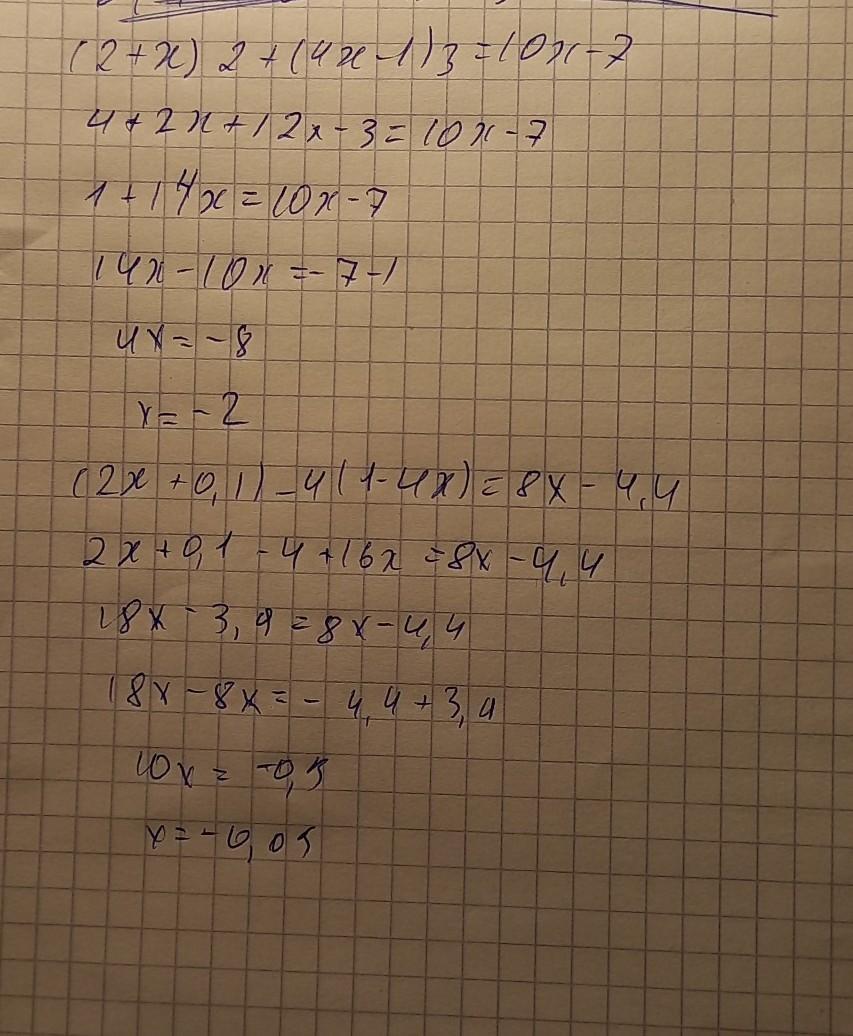 (2+x) 2 + (4x-1)3 = 10x-7
4+2x+12x-3=10x-7
1+14x=10x-7
14x-10x=-7-1
4x=-8
x=-2
(2x+0,1)-4(1-4x)=8x-4,4
2x+0,1-4+16x=8x-4,4
18x-3,9=8x-4,4
18x-8x=-4,4+3,9
10x=-0,5
x=-0,05